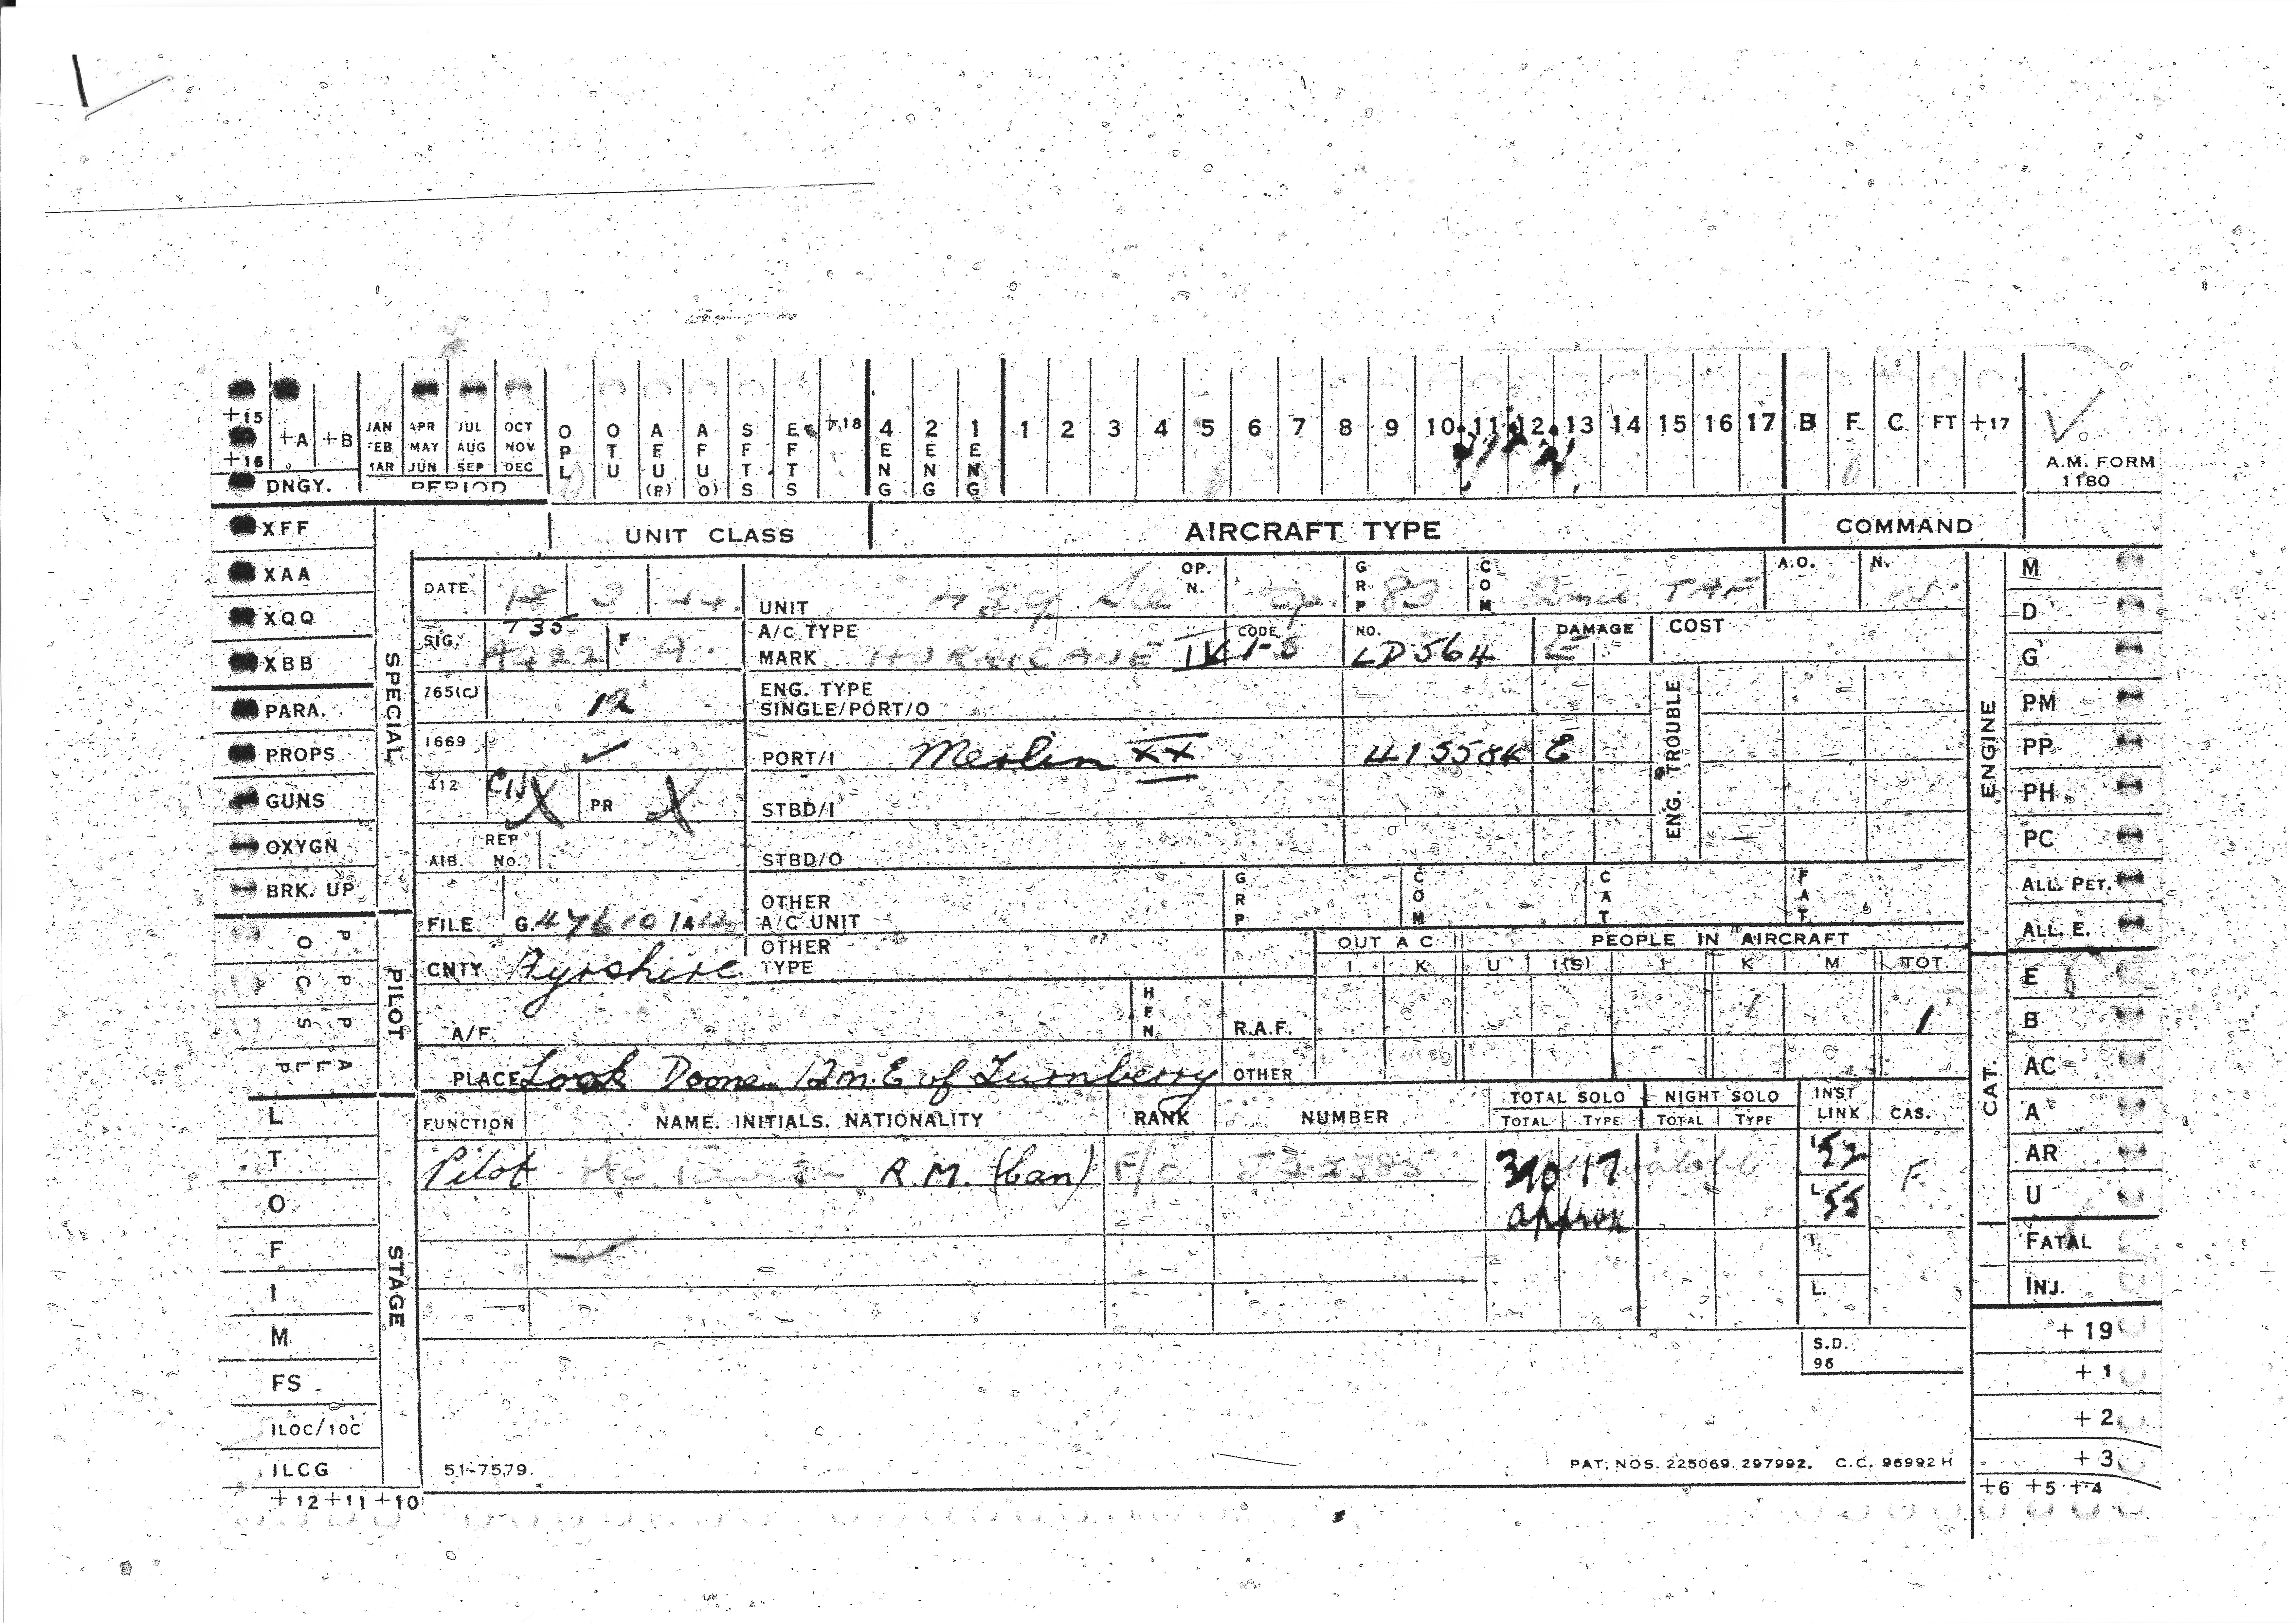 +15 +A +B JAN APR JUL OCT O O A A S E +18 4 2 1 1 2 3 4 5 6 7 8 9 10 11 12 13 14 15 16 17 B F C FT +17
+16 FEB MAY AUG NOV P T F F F F E E E
MAR JUN SEP DEC L U U U T T N N N
DNGY. PERIOD (P) (O) S S G G G
A.M. FORM
1180
UNIT CLASS AIRCRAFT TYPE COMMAND
XFF
XAA
XQQ
XBB
PARA.
PROPS
GUNS
OXYGN
BRK. UP
SPECIAL
PILOT
STAGE
L
T
O
F
I
M
FS
ILOC/10C
ILCG
+12 +11 +10
DATE 3 44 UNIT 439 OP. N. GRP 83 COM TAF A.O. N.
SIG. F A. A/C TYPE MARK HURRICANE IV CODE NO. LD564 DAMAGE E COST
765(c) 12 ENG. TYPE SINGLE/PORT/O ENG. TROUBLE
1669 PORT/I Merlin XX 41558K E
412 X PR X STBD/I
AIB. REP No. STBD/O
FILE G. OTHER A/C UNIT GRP COM CAT FAT
CNTY Ayrshire OTHER TYPE OUT A C PEOPLE IN AIRCRAFT
I K U I(S) I K M TOT.
A/F. HEN R.A.F. 1 1
PLACE Look Doone 12m. E of Turnberry OTHER
FUNCTION NAME. INITIALS. NATIONALITY RANK NUMBER TOTAL SOLO NIGHT SOLO INST LINK CAS.
TOTAL TYPE TOTAL TYPE
Pilot R.M. (Can) F/O 310 17 52 F
approx L 55
I.
L.
S.D.
96
51-7579. PAT. NOS. 225069. 297992. C.C. 96992 H
ENGINE
M
D
G
PM
PP
PH
PC
ALL. PET.
ALL. E.
CAT.
E
B
AC
A
AR
U
FATAL
INJ.
+19
+1
+2
+3
+6 +5 +4